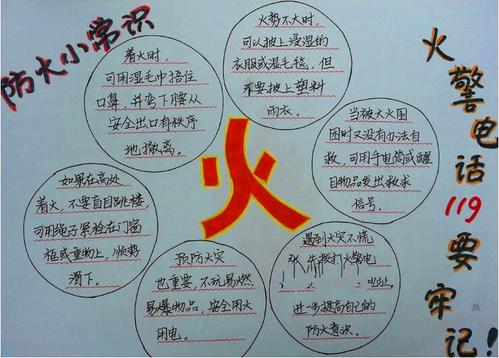 防火小常识
着火时，
可用湿毛巾捂住
口鼻，并弯下腰从
安全出口有秩序
地撤离。
火势不大时，
可以披上浸湿的
衣服或湿毛毯，但
要披上塑料
雨衣。
当被大火围
困时又没有办法自
救，可用手电筒或醒
目物品发出求救
信号。
如果在高处
着火，不要盲目跳楼，
可用绳子紧拴在门窗
框或重物上，顺势
滑下。
火
预防火灾
也重要，不玩易燃
易爆物品，安全用火
用电。
遇到火灾不慌
张，打火警电
地址。
进一步提高自己的
防火意识。
火警电话119要牢记！